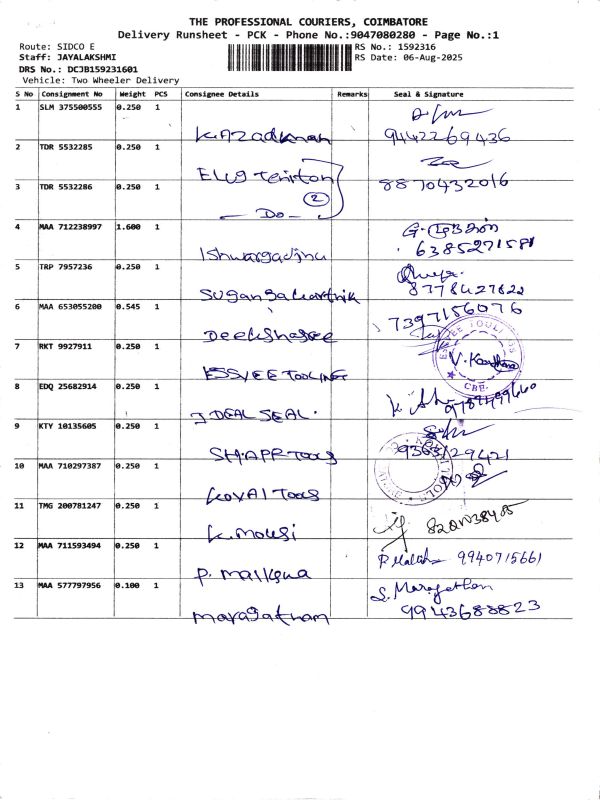 THE PROFESSIONAL COURIERS, COIMBATORE
Delivery Runsheet - PCK - Phone No.:9047080280 - Page No.:1
Route: SIDCO E RS No.: 1592316
Staff: JAYALAKSHMI RS Date: 06-Aug-2025
DRS No.: DCJB159231601
Vehicle: Two Wheeler Delivery
S No Consignment No Weight PCS Consignee Details Remarks Seal & Signature
1 SLM 375500555 0.250 1
K.Azad 9442269436
2 TDR 5532285 0.250 1
8870432016
3 TDR 5532286 0.250 1
2
- Do -
4 MAA 712238997 1.600 1
6385271581
5 TRP 7957236 0.250 1
8778427822
6 MAA 653055200 0.545 1
7397156076
Deekshasree
7 RKT 9927911 0.250 1
ESSVEE TOOLING
8 EDQ 25682914 0.250 1
IDEAL SEAL.
9 KTY 10135605 0.250 1
SHARP Tools 9363129421
10 MAA 710297387 0.250 1
KOVAI Tools
11 TMG 200781247 0.250 1
K. Mousi
12 MAA 711593494 0.250 1
P. Mallika 9940715661
13 MAA 577797956 0.100 1
S. Maragatham
maragatham 9943688823